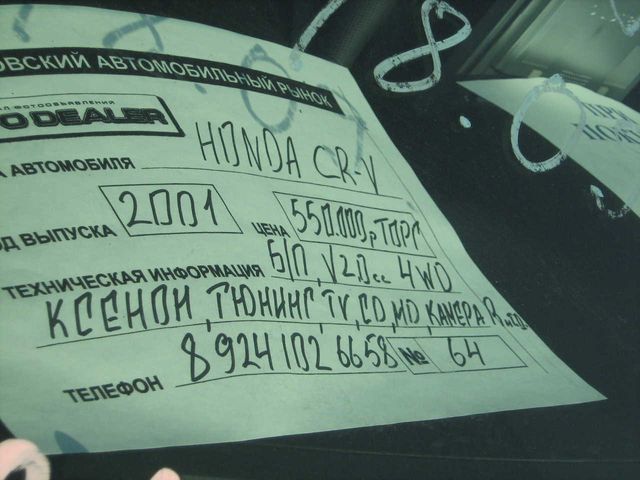 ОВСКИЙ АВТОМОБИЛЬНЫЙ РЫНОК
АЛ ФОТООБЪЯВЛЕНИЯ
O DEALER
А АВТОМОБИЛЯ HONDA CR-V
ОД ВЫПУСКА 2001 ЦЕНА 550.000р ТОРГ
ТЕХНИЧЕСКАЯ ИНФОРМАЦИЯ Б/П, V2.0cc 4WD
КСЕНОН, ТЮНИНГ, TV, CD, MD, КАМЕРА
ТЕЛЕФОН 8 924 102 6658 № 64
8 0
ПРИ